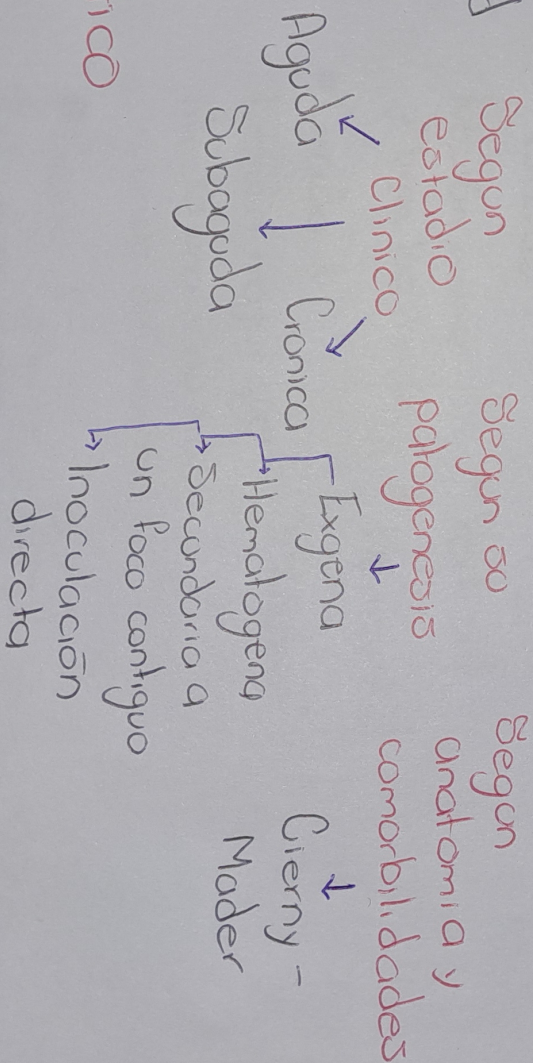 Segun
estadio
Clinico
Aguda
Subaguda
Cronica
Segun su
patogenesis
Exgena
Hematogena
Secundaria a
un foco contiguo
Inoculación
directa
Segun
anatomia y
comorbilidades
Cierny -
Mader
ico